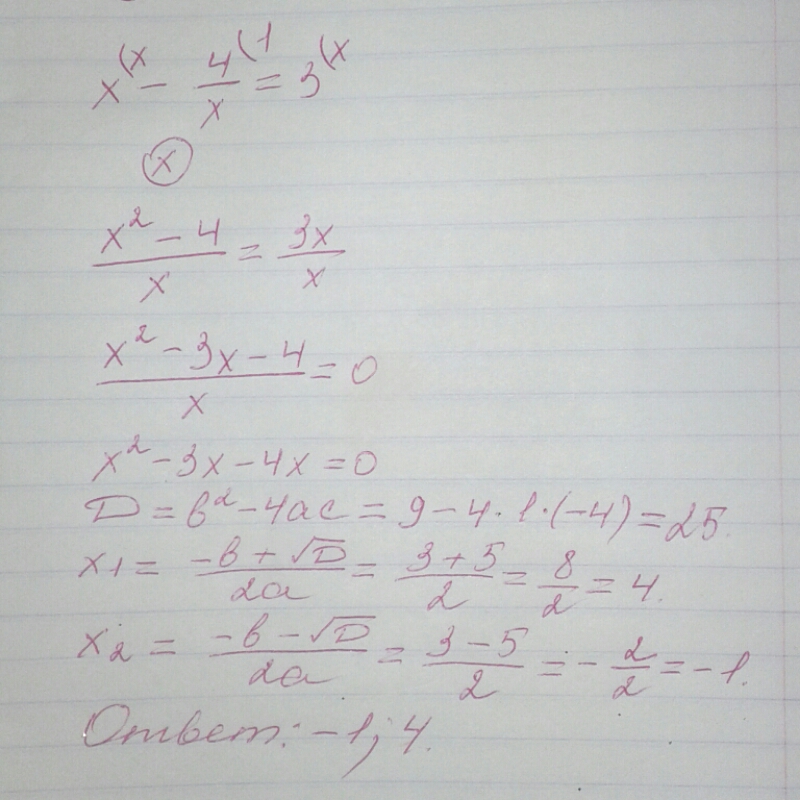 x^(x - 4^(1/x = 3^(x
x
x² - 4/x = 3x/x
x² - 3x - 4/x = 0
x² - 3x - 4x = 0
D = b² - 4ac = 9 - 4·1·(-4) = 25.
x1 = -b + √D/2a = 3 + 5/2 = 8/2 = 4.
x2 = -b - √D/2a = 3 - 5/2 = -2/2 = -1.
Ответ: -1; 4.